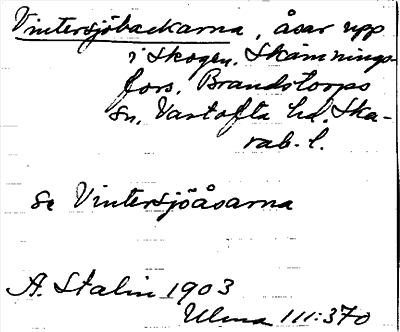 Vintersjöbackarna, åsar upp
i skogen. Skämnings-
fors, Brandstorps
sn. Vartofta hd. Ska-
rab. l.
se Vintersjöåsarna
A. Stalin 1903
Ulma 111:370